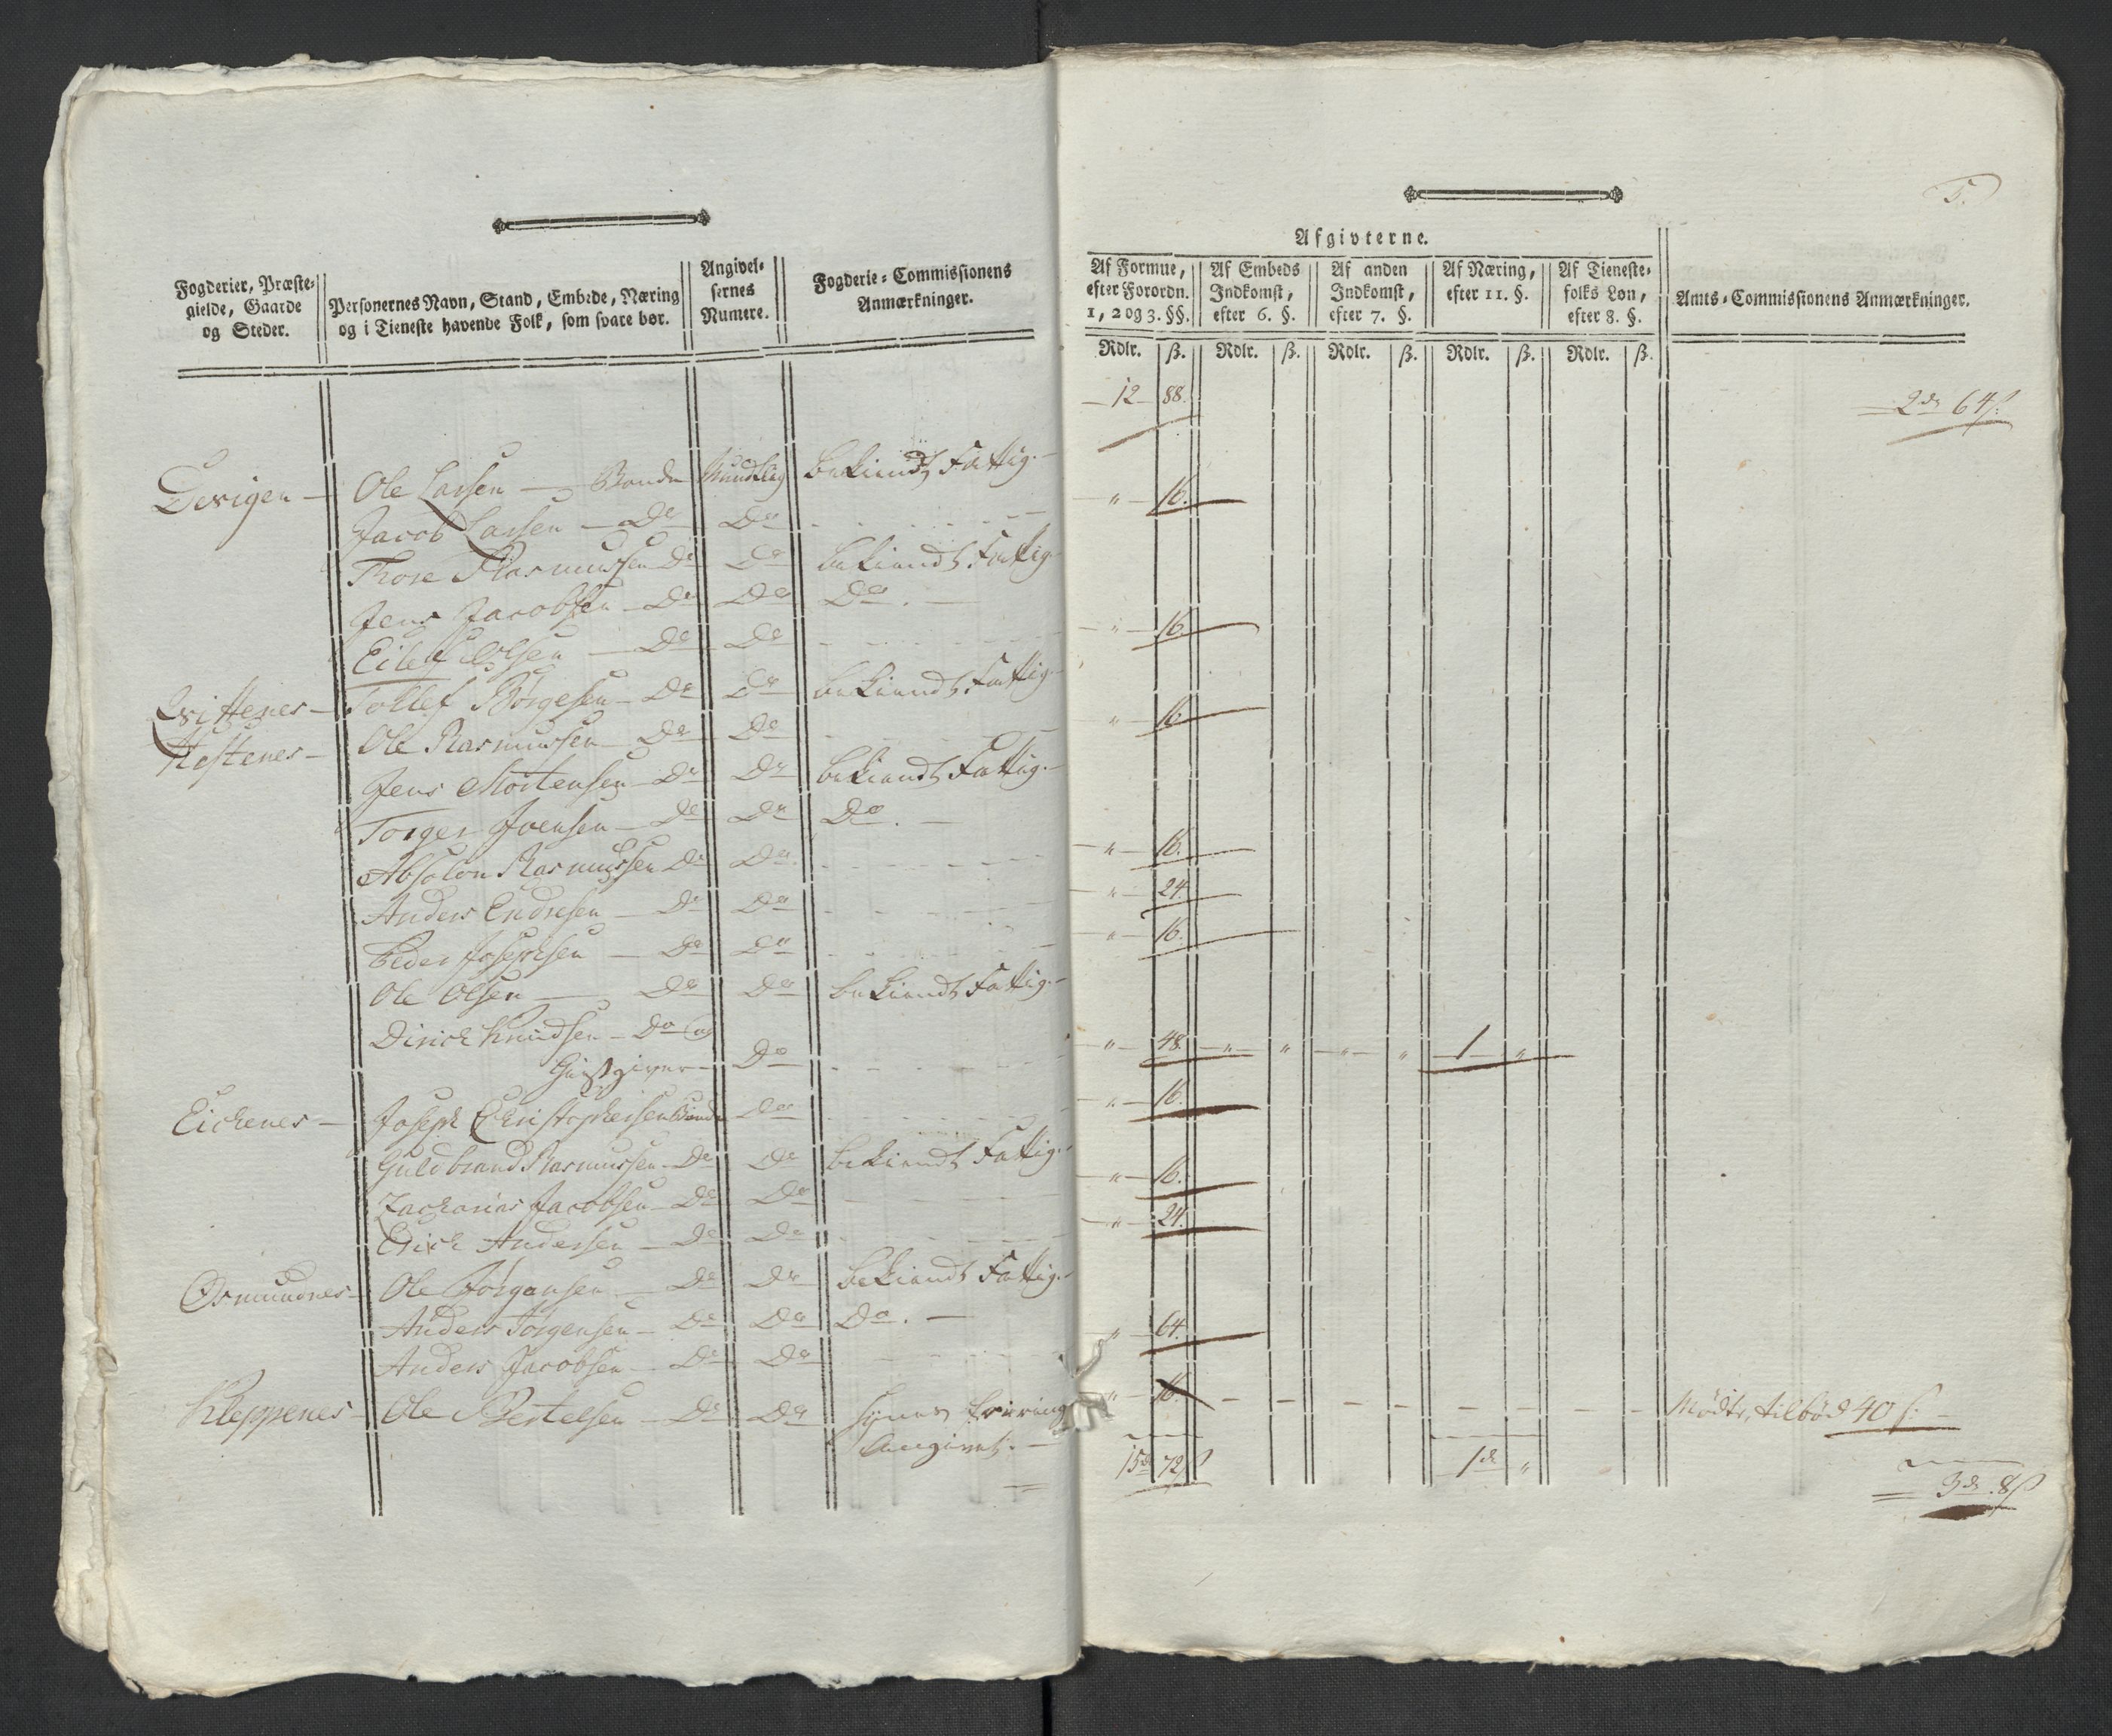 Fogderier, Præste-
gielde, Gaarde
og Steder.
Personernes Navn, Stand, Embede, Næring
og i Tieneste havende Folk, som svare bør.
Angivel-
sernes
Numere.
Fogderie-Commissionens
Anmærkninger.
Ole Larsen — Bonde Mundtlig bekiendt Fattig.
Jacob Larsen — Do Do
Thore Rasmussen Do Do bekiendt Fattig
Jens Jacobsen — Do Do Do.
Eilef Olsen — Do Do
Tollef Börgesen — Do Do bekiendt Fattig
Hestenes — Ole Rasmussen — Do Do
Jens Mortensen — Do Do bekiendt Fattig.
Torger Joensen — Do Do Do.
Absolon Rasmussen Do Do
Anders Endresen — Do Do
Peder Josephsen — Do Do
Ole Olsen — Do Do bekiendt Fattig.
Dirick Knudsen — Do og
Giestgiver — Do
Eichenes — Joseph Christophersen Bonde Do
Guldbrand Rasmussen Do Do bekiendt Fattig.
Zacharias Jacobsen — Do Do
Erich Andersen — Do Do
Osmundnes — Ole Jørgensen — Do Do bekiendt Fattig.
Anders Jørgensen — Do Do Do.
Anders Jacobsen — Do Do
Kleppenes — Ole Bertelsen — Do Do synes for ring
Angivet.
5.
Afgivterne.
Af Formue,
efter Forordn.
1, 2 og 3. §§.
Af Embeds
Indkomst,
efter 6. §.
Af anden
Indkomst,
efter 7. §.
Af Næring,
efter 11. §.
Af Tieneste-
folks Løn,
efter 8. §.
Amts-Commissionens Anmærkninger.
Rdlr. ß. Rdlr. ß. Rdlr. ß. Rdlr. ß. Rdlr. ß.
12 88. 2 64
" 16.
" 16.
" 16.
" 16.
" 24.
" 16.
" 48. " " " " 1 "
" 16.
" 16.
" 24.
" 64.
" 16. Mödte, tilböd 40 ß.
15 72 1 "
3 8